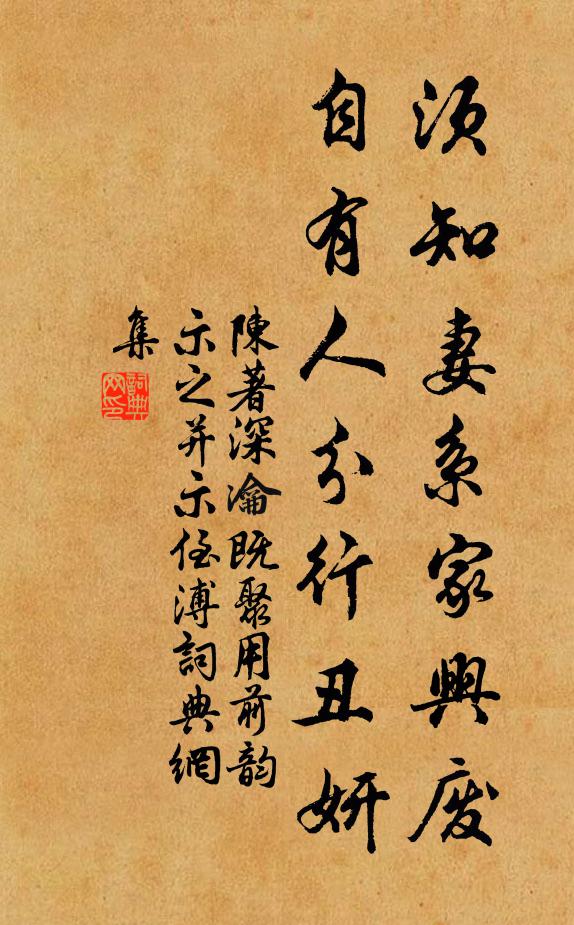 须知妻系家興废
自有人分行丑妍
陳著深瀹既聚用前韵
示之并示侄溥詞典網
集
詞典网印